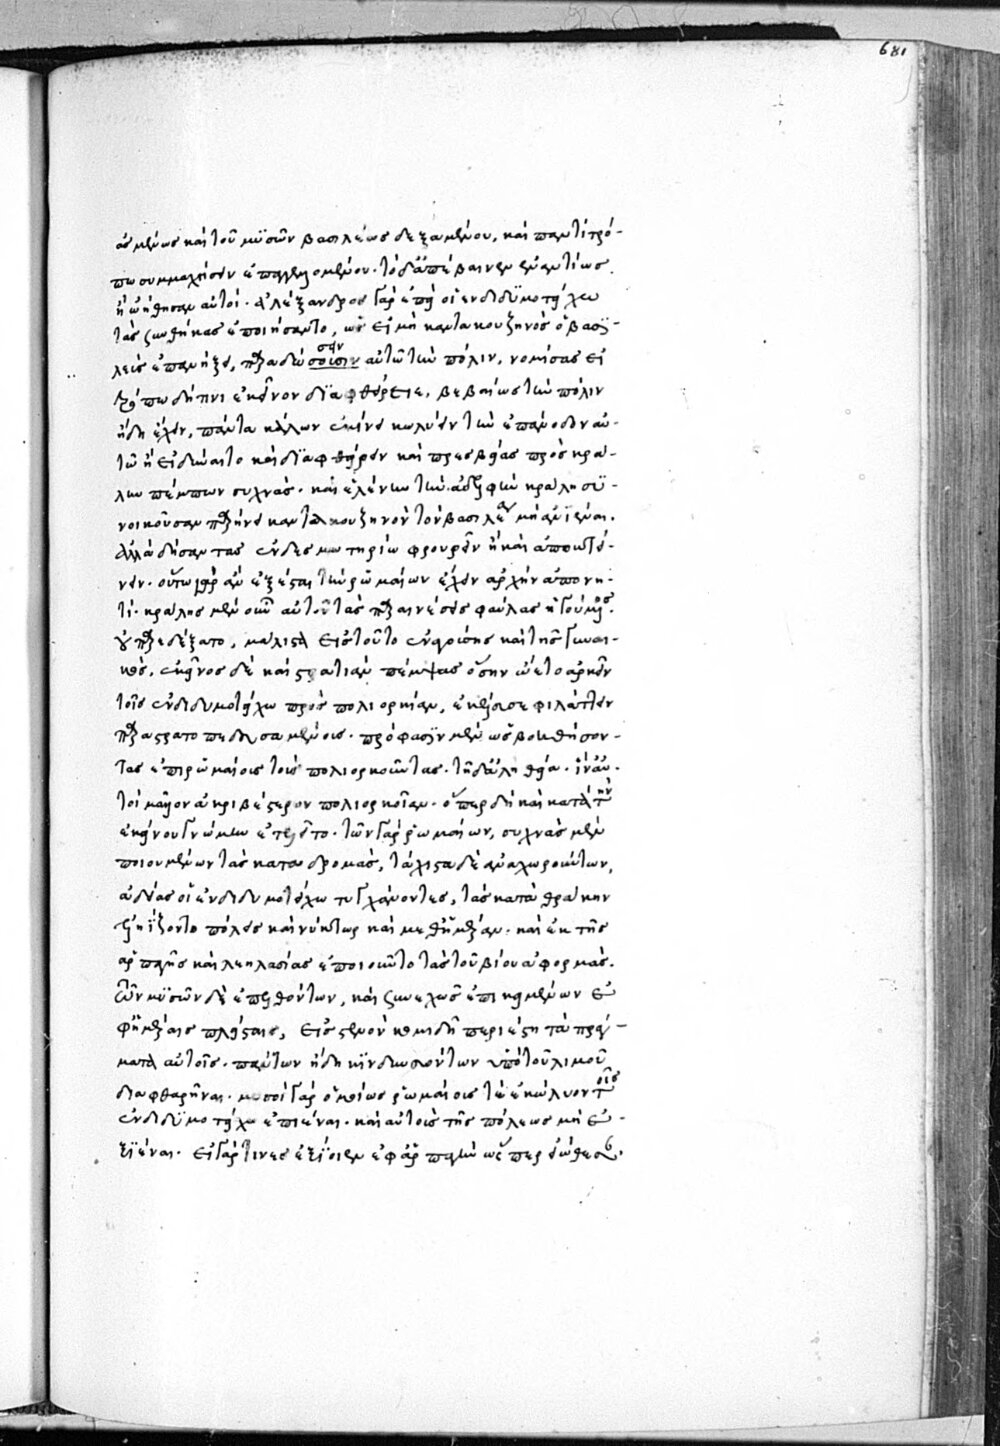 681
ἀσμένως καὶ τοῦ μυσῶν βασιλέως δεξαμένου, καὶ παντὶ τρό-
πω συμμαχήσειν ἐπαγγελομένου. τὸ δ' ἀπέβαινεν ἐναντίως
ἢ ὠήθησαν αὐτοί. ἀλέξανδρος γὰρ ἐπεὶ οἱ ἐν διδυμοτείχω
τὰς συνθήκας ἐποιήσαντο, ὡς εἰ μὴ καντακουζηνὸς ὁ βασι-
λεὺς ἐπανήξει, παραδώσουσιν σειν αὐτῶ τὴν πόλιν, νομίσας εἰ
τρόπω δή τινι ἐκεῖνον διαφθάρειε, βεβαίως τὴν πόλιν
ἤδη ἔχειν, πάντα κάλων ἐκίνει κωλύειν τὴν ἐπάνοδον αὐ-
τῶ ἢ εἰ δύναιτο καὶ διαφθείρειν καὶ πρεσβείας πρὸς κρά-
λην πέμπων συχνὰς. καὶ ἑλένην τὴν ἀδελφὴν κράλη συ-
νοικοῦσαν παρήνει καντακουζηνὸν τὸν βασιλέα μὴ ἀνϊέναι.
ἀλλὰ δήσαντας ἐν δεσμωτηρίω φρουρεῖν ἢ καὶ ἀποκτέ-
νειν. οὕτω γὰρ ἂν ἐξέσται τὴν ῥωμαίων ἔχειν ἀρχὴν ἀπονη-
τί. κράλης μὲν οὖν αὐτοῦ τὰς παραινέσεις φαύλας ἡγούμενος
οὐ παρεδέξατο, μάλιστα εἰς τοῦτο ἐναγούσης καὶ τῆς γυναι-
κὸς. ἐκεῖνος δὲ καὶ στρατιὰν πέμψας ὅσην ὤετο ἀρκεῖν
τοῖς ἐν διδυμοτείχω πρὸς πολιορκίαν, ἐκέλευσε φιλάττειν
παραστρατοπεδευσαμένοις. πρόφασιν μὲν ὡς βοηθήσον-
τας ἐπὶ ῥωμαίοις τοὺς πολιορκοῦντας. τῆ δ' ἀληθεία. ἵν' αὐ-
τοὶ μᾶλλον ἀκριβέστερον πολιορκοῖεν. ὅπερ δὴ καὶ κατὰ τὴν
ἐκείνου γνώμην ἐτελεῖτο. τῶν γὰρ ῥωμαίων, συχνὰς μὲν
ποιουμένων τὰς καταδρομὰς, τάχιστα δὲ ἀναχωρούντων,
ἀδείας οἱ ἐν διδυμοτείχω τυγχάνοντες, τὰς κατὰ θράκην
ἐληΐζοντο πόλεις καὶ νύκτωρ καὶ μεθ' ἡμέραν. καὶ ἐκ τῆς
ἁρπαγῆς καὶ λεηλασίας ἐποιοῦντο τὰς τοῦ βίου ἀφορμὰς.
τῶν μυσῶν δὲ ἐπελθόντων, καὶ συνεχῶς ἐπικειμένων ἐ-
φ' ἡμέραις πλείσταις, εἰς στενὸν κομιδῆ περιέστη τὰ πράγ-
ματα αὐτοῖς. πάντων ἤδη κινδυνευόντων ὑπὸ τοῦ λιμοῦ
διαφθαρῆναι. μυσοὶ γὰρ ὁμοίως ῥωμαίοις τὲ ἐκώλυον τοῖς
ἐν διδυμοτείχω ἐπιέναι. καὶ αὐτοὺς τῆς πόλεως μὴ ἐ-
ξιέναι. εἰ γάρ τινες ἐξίοιεν ἐφ' ἁρπαγὴν ὥσπερ εἰώθεσαν.